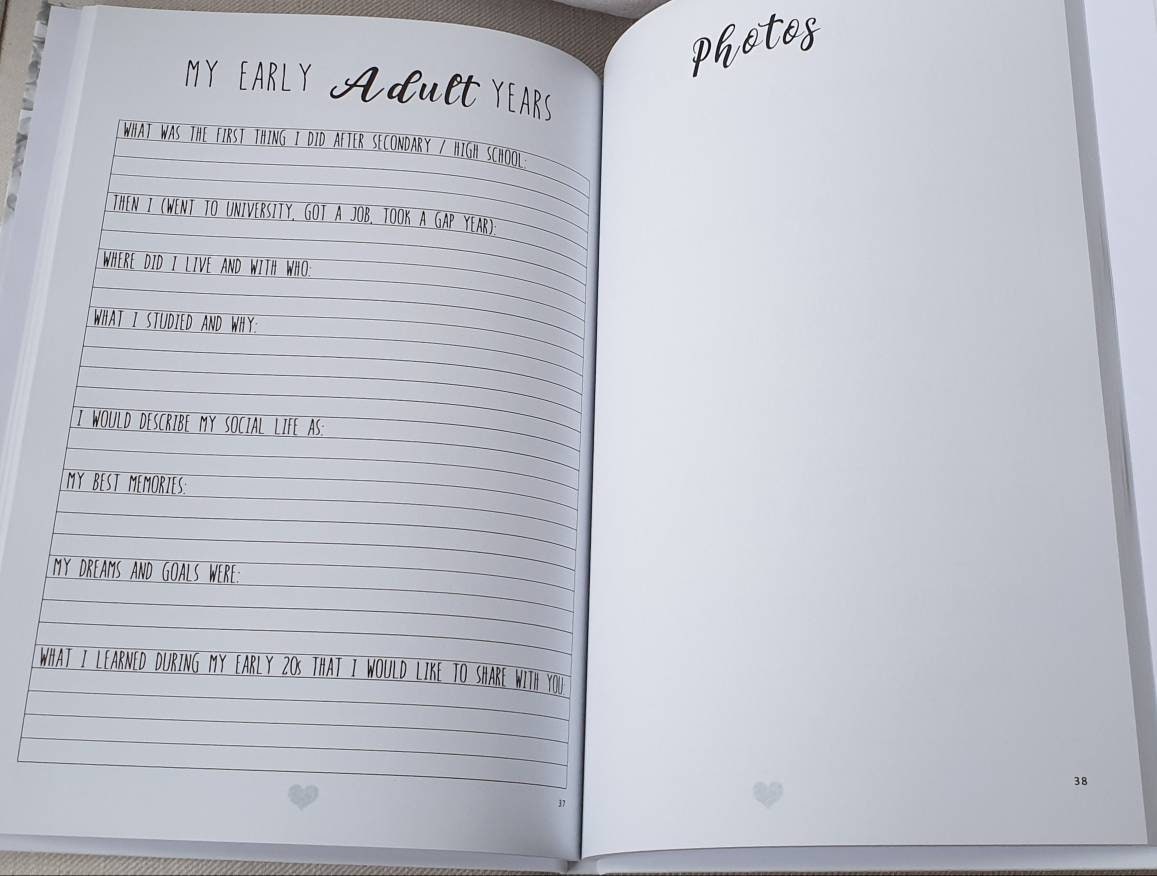 MY EARLY Adult YEARS
WHAT WAS THE FIRST THING I DID AFTER SECONDARY / HIGH SCHOOL:
THEN I (WENT TO UNIVERSITY, GOT A JOB, TOOK A GAP YEAR):
WHERE DID I LIVE AND WITH WHO:
WHAT I STUDIED AND WHY:
I WOULD DESCRIBE MY SOCIAL LIFE AS:
MY BEST MEMORIES:
MY DREAMS AND GOALS WERE:
WHAT I LEARNED DURING MY EARLY 20s THAT I WOULD LIKE TO SHARE WITH YOU:
37
Photos
38